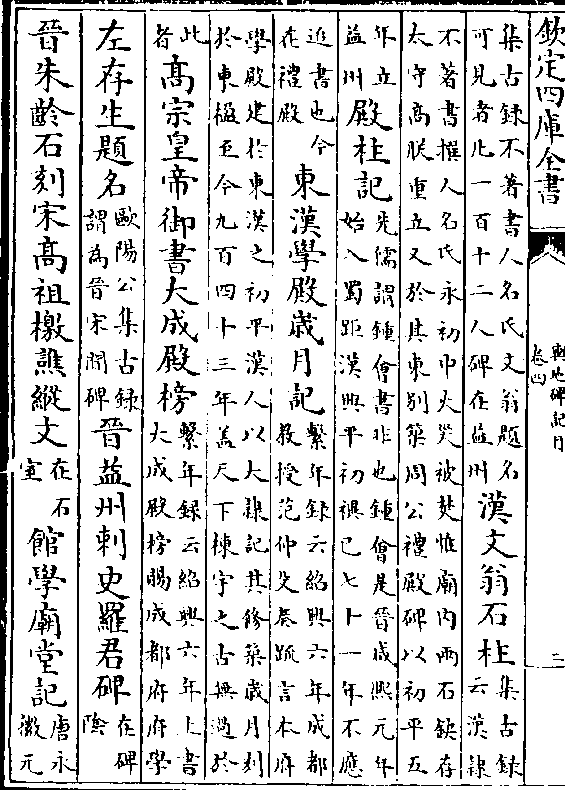 欽定四庫全書
輿地碑記目
卷四
二
集古録不著書人名氏文翁題名可見者凡一百十二人碑在益州漢文翁石柱集古録云漢隸
不著書撰人名氏永初中火災被焚惟廟内兩石鈌存太守髙朕重立又於其東别築周公禮殿碑以初平五
年立益州殿柱記先儒謂鍾會書非也鍾會是晉咸熙元年始入蜀距漢興平初禩已七十一年不應
追書也今在禮殿東漢學殿歲月記繫年録云紹興六年成都教授范仲殳奏䟽言本府
學殿建於東漢之初平漢人以大隸記其修築歲月刻於東楹至今九百四十三年盖天下棟宇之古無過於
此者髙宗皇帝御書大成殿榜繫年録云紹興六年上書大成殿榜賜成都府府學
左存生題名歐陽公集古録謂為晉宋間碑晉益州刺史羅君碑在碑陰
晉朱齡石刻宋髙祖檄譙縱文在石室館學廟堂記唐永徽元